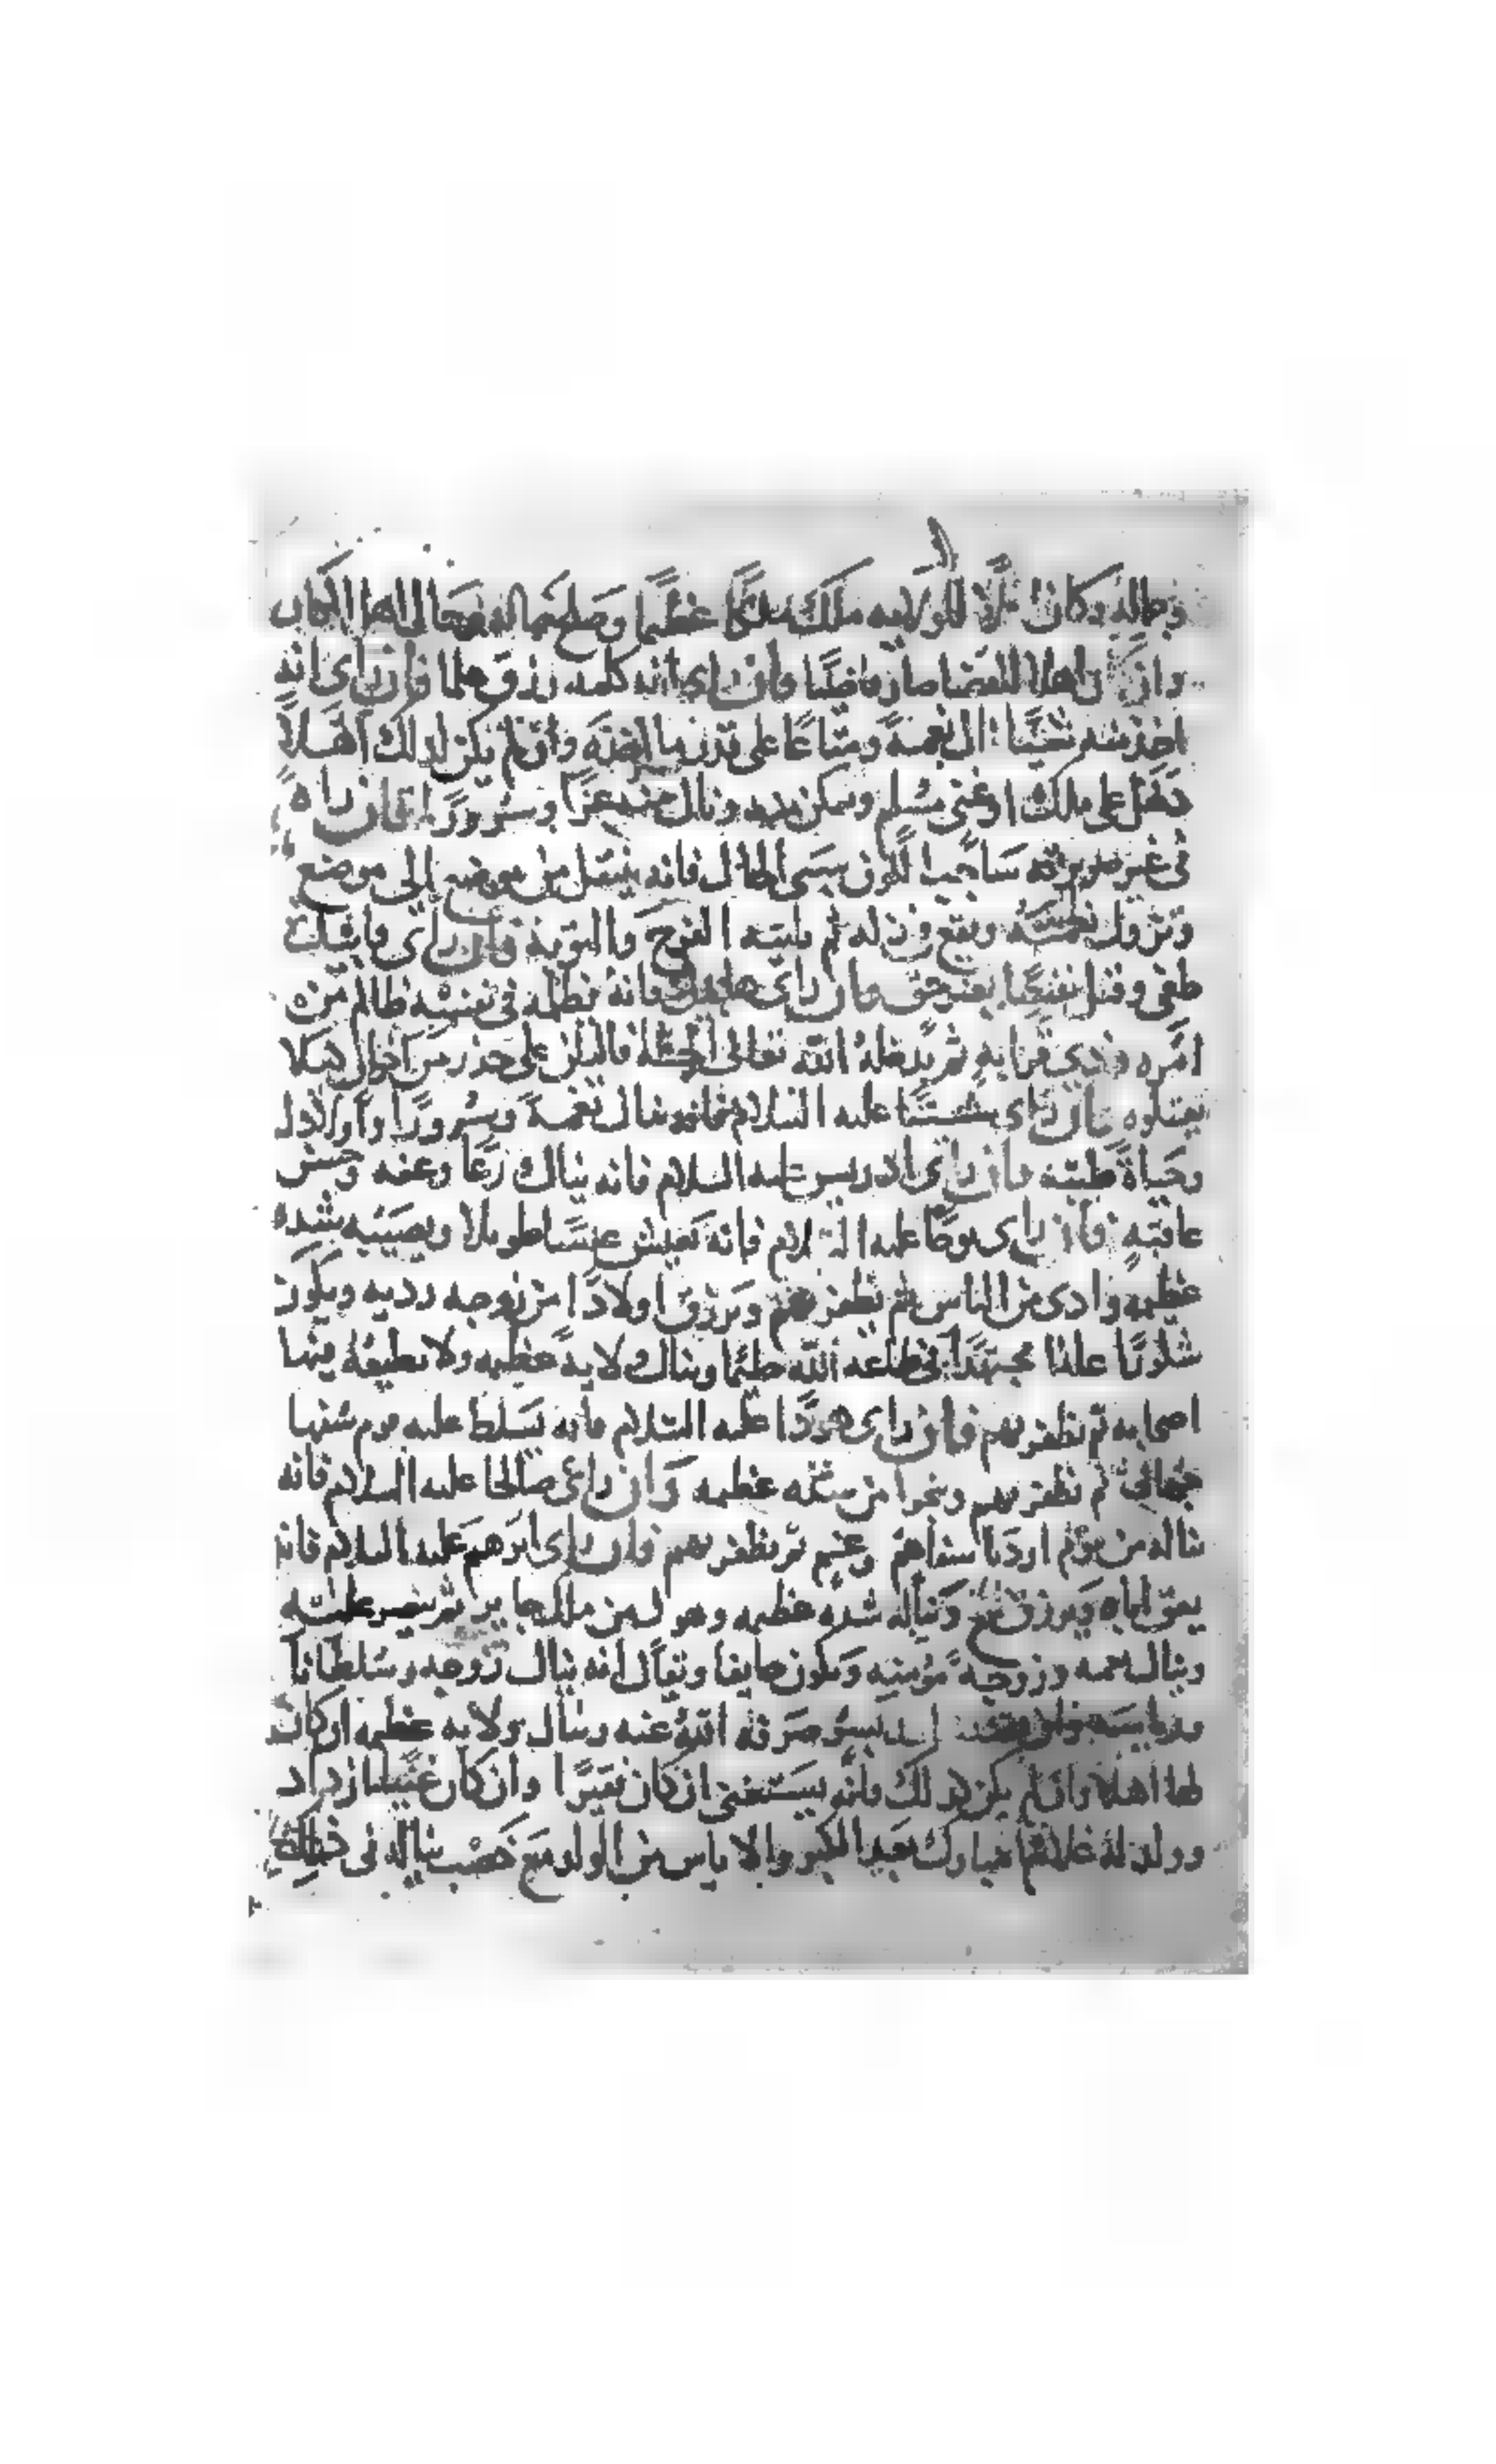 وجماله وكان اهلا للولايه ملك ملكًا عظيمًا وصلح حاله
وان كان اهلا للقضا صار قاضيًا فان راى انه كلمه رزق علما فان راى انه
اخذ منه شيًا نال نعمةً ومتاعًا على قدر ما اخذه وان لم يكن لذلك اهلاً
دخل على ملك او غنى مسلم وتمكن منه ونال منه عزًا وسرورًا فان راه
فى غير صورته شاحب اللون سيى الحال فانه ينتقل من موضع الى موضع
وتزول نعمته ويقع فى زله ثم ياتيه الفرج والتوبة فان راى قابيل
طغى وقتل نفسًا بغير حق وان راى هابيل فانه يظلمه فى نفسه ظالم من
امره ذوى قرابه ثم يدخله الله تعالى الجنة فاليكن على حذر من اخوال كيلا
يقتلوه فان راى شيثًا عليه السلام فانه ينال نعمةً وسرورًا واولاد
وحياةً طيبه فان راى ادريس عليه السلام فانه ينال ورعا وعفه وحسن
عاقبه فان راى نوحا عليه السلام فانه يعيش عيشًا طويلا ويصيبه شده
عظيمه واذى من الناس ثم يظفر بهم ويرزق اولادًا من زوجه رديه ويكون
شكورًا عالما مجتهدًا فى طاعه الله حليمًا وينال ولايه عظيمه ولا يطيعه فيها
اصحابه ثم يظفر بهم فان راى هودًا عليه السلام فانه يسلط عليه قوم سفها
جهال ثم يظفر بهم وينجوا من شده عظيمه وان راى صالحا عليه السلام فانه
يناله من قوم ارديا سفاهة وغم ثم يظفر بهم وان راى ابرهيم عليه السلام فانه
يعق اباه ويرزق الحج ويناله شده عظيمه وهول من ملك جاير ثم ينصر عليه
وينال نعمه وزوجه مؤمنه ويكون خايفا ويقال انه ينال زوجه وسلطانا
ورياسه وان قصده احد بسو صرفه الله عنه ونال ولايه عظيمه ان كان
لها اهلا وان لم يكن لذلك فانه يستغنى ان كان فقيرًا وان كان غنيا ازداد
وولد له غلام مبارك بعد الكبر والاياس من الولد مع خصب يناله فى ذلك